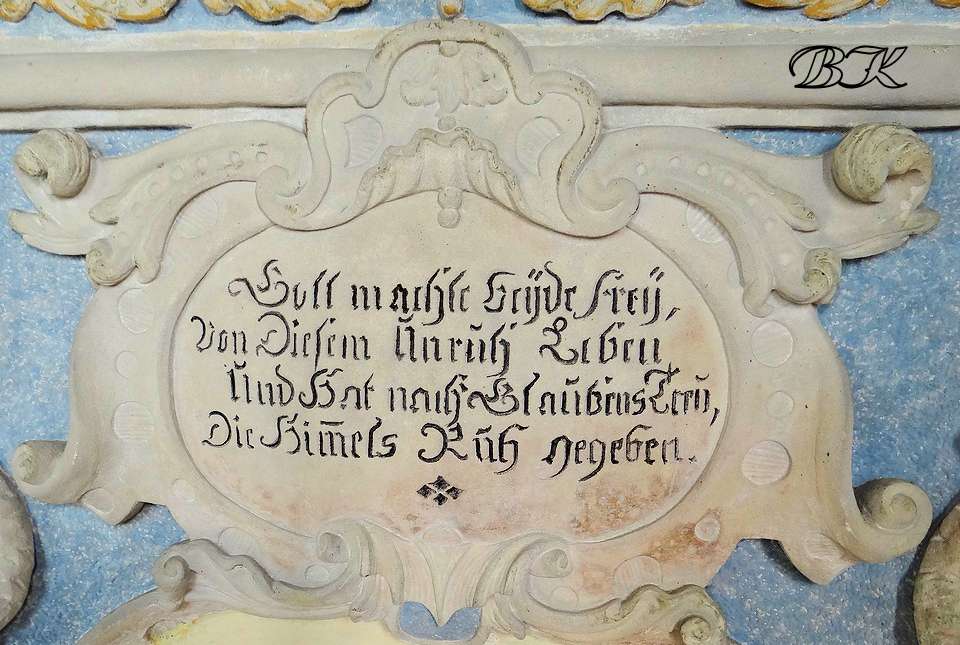 BK
Gott machte beÿde freÿ,
Von Diesem Unruh Leben,
Und Hat nach Glaubens Treü,
Die Him̄els Ruh gegeben.